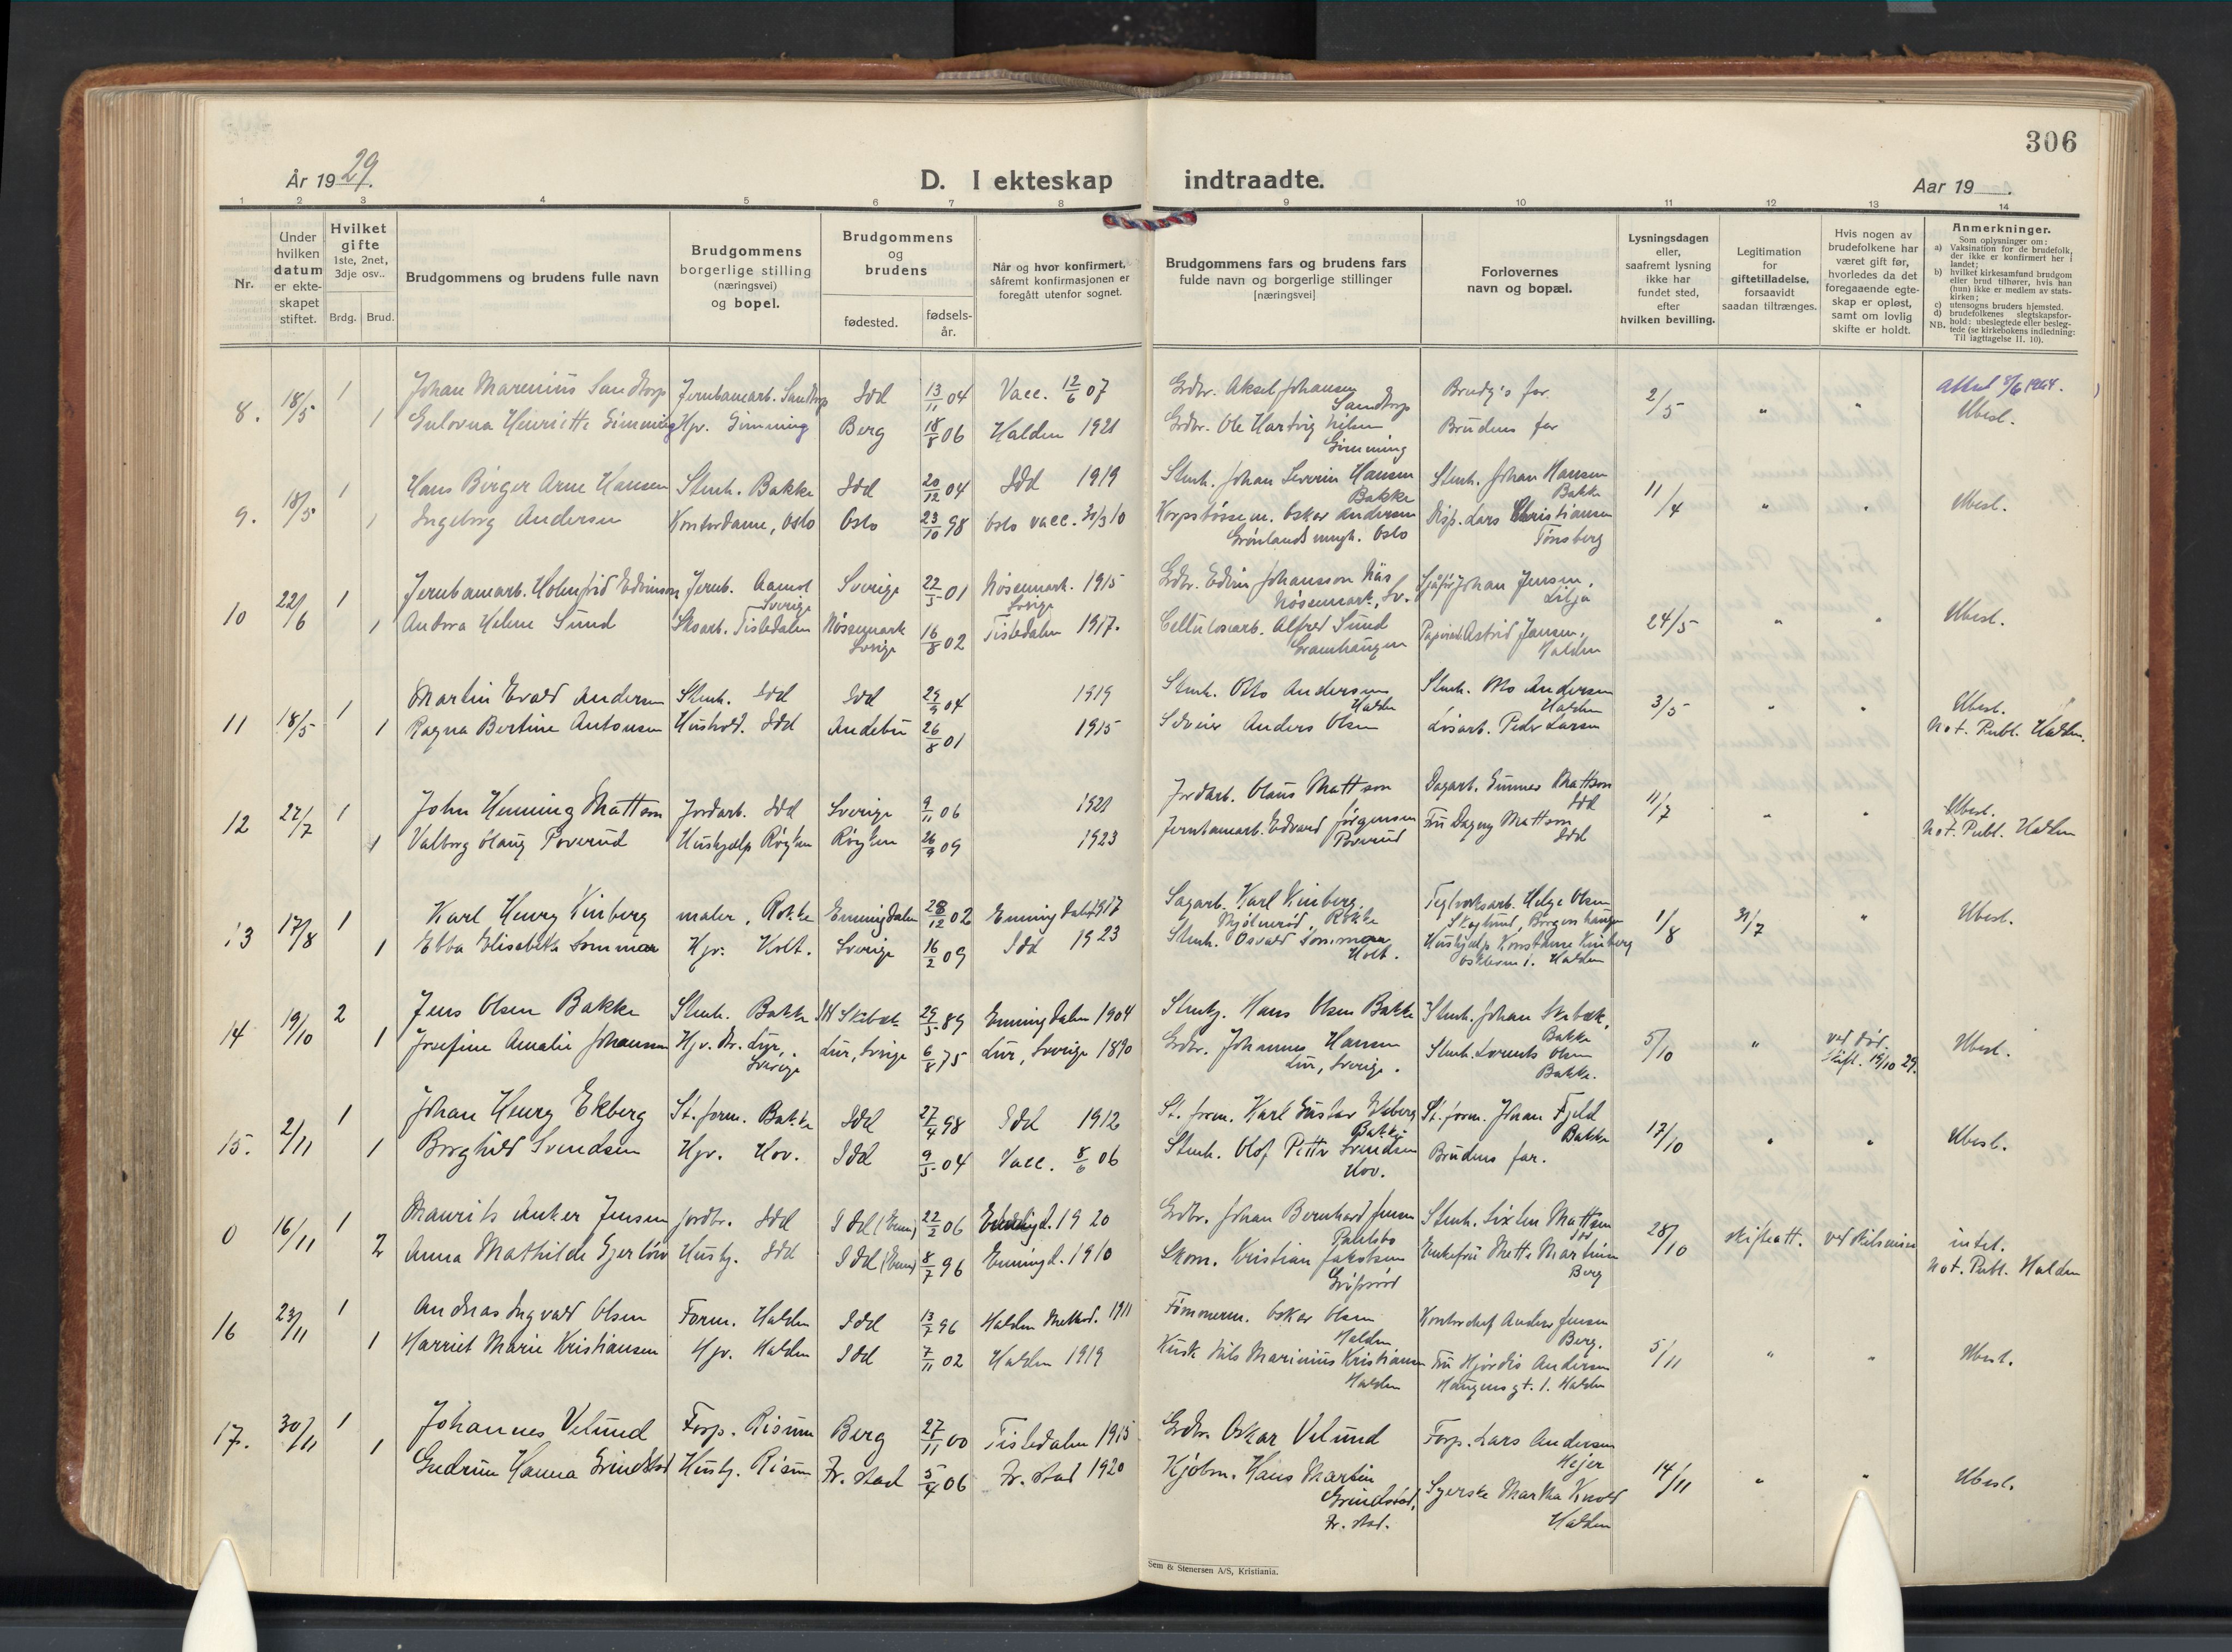 306
År 1929.
D. I ekteskap indtraadte.
Aar 19
1 2 3 4 5 6 7 8 9 10 11 12 13 14
Nr.
Under hvilken datum er ekteskapet stiftet.
Hvilket gifte 1ste, 2net, 3dje osv..
Brdg. Brud.
Brudgommens og brudens fulle navn
Brudgommens borgerlige stilling (næringsvei) og bopel.
Brudgommens og brudens
fødested.
fødsels-år.
Når og hvor konfirmert, såfremt konfirmasjonen er foregått utenfor sognet.
Brudgommens fars og brudens fars fulde navn og borgerlige stillinger [næringsvei]
Forlovernes navn og bopæl.
Lysningsdagen eller, saafremt lysning ikke har fundet sted, efter hvilken bevilling.
Legitimation for giftetilladelse, forsaavidt saadan tiltrænges.
Hvis nogen av brudefolkene har været gift før, hvorledes da det foregaaende egteskap er opløst, samt om lovlig skifte er holdt.
Anmerkninger.
Som oplysninger om:
a) Vaksination for de brudefolk, der ikke er konfirmert her i landet;
b) hvilket kirkesamfund brudgom eller brud tilhører, hvis han (hun) ikke er medlem av statskirken;
c) utensogns bruders hjemsted.
d) brudefolkenes slegtskapsforhold: ubeslegtede eller beslegtede (se kirkebokens indledning:
NB. Til iagttagelse II. 10).
8. 18/5 1 Johan Marenius Sandtorp Jernbanearb. Sandtorp Idd 13/11 04 Vacc. 12/6 07 Grdbr. Aksel Johansen Sandtorp Brudg's far 2/5 " " Attest 1964.
1 Gulovna Henriette Gimming Hjv. Gimming Berg 18/8 06 Halden 1921 Grdbr. Ole Hartvig Nilsen Gimming Brudens far Ubesl.
9. 18/5 1 Hans Birger Arne Hansen Stenh. Bakke Idd 20/12 04 Idd 1919 Stenh. Johan Severin Hansen Bakke Stenh. Johan Hansen Bakke 11/4 " " Ubesl.
1 Ingeborg Andersen Kontordame, Oslo Oslo 23/10 98 Oslo vacc. Oskar Andersen Oslo Disp. Lars Christiansen Tønsberg
10 22/6 1 Jernbanearb. Holmfrid Edvinson Jernb. Aamot Sverige Sverige 22/5 01 Nössemark. 1915 Sverige Grdbr. Edvin Johansson Näs Nössemark, Sv. Sjåfør Johan Jensen, Lilja 24/5 " " Ubesl.
1 Andora Helene Sund Skoarb. Tistedalen Nössemark Sverige 16/8 02 Tistedalen 1917. Cellulosearb. Alfred Sund Astrid Jansen, Halden
11 18/5 1 Martin Evald Andersen Stenh. Idd Idd 29/9 04 1919 Stenh. Otto Andersen Halden Stenh. Otto Andersen Halden 3/5 " " Ubesl.
1 Ragna Bertine Antonsen Hushold. Idd Andebu 26/8 01 1915 Anders Olsen Løsarb. Peder Larsen Not. Publ. Halden.
12 27/7 1 John Henning Mattson Jordarb. Idd Sverige 9/11 06 1921 Jordarb. Olaus Mattson Dagarb. Gunnes Mattson Idd 11/7 " " Ubesl.
1 Valborg Olaug Poverud Hushjælp Røyken Røyken 26/9 09 1923 Jernbanearb. Edvard Jørgensen Poverud Fru Dagny Mattson Idd Not. Publ. Halden
13 17/8 1 Karl Henry Kinberg maler, Rokke Enningdalen 28/12 02 Enningdalen 1917 Sagarb. Karl Kinberg, Rokke Teglverksarb. Helge Olsen Skoglund, 1/8 31/7 " Ubesl.
1 Ebba Elisabeth Sommar Hjv. Holt. Sverige 16/2 09 Idd 1923 Stenh. Osvald Sommar Holt. Hushjælp Konstanse Kinberg Halden
14 19/10 2 Jens Olsen Bakke Stenh. Bakke Idd Skibæk 29/5 89 Enningdalen 1904 Stenhg. Hans Olsen Bakke Stenh. Johan Skibæk, Bakke 5/10 " ved død. Skift. 19/10 29. Ubesl.
1 Josefine Amalie Johansen Hjv. Lur, Sverige Lur, Sverige 6/8 75 Lur, Sverige 1890 Grdbr. Johannes Hansen Lur, Sverige. Stenh. Laurents Olsen Bakke.
15. 2/11 1 Johan Henry Ekberg St. form. Bakke Idd 27/4 98 Idd 1912 St. form. Karl Gustav Ekberg Bakke St. form. Johan Fjeld Bakke 17/10 " " Ubesl.
1 Borghild Svendsen Hjv. Hov. Idd 9/5 04 Vacc. 8/6 06 Stenh. Olof Petter Svendsen Hov. Brudens far.
0 16/11 1 Maurits Anker Jensen jordbr. Idd Idd (Enn) 22/2 06 Enningd. 1920 Grdbr. Johan Bernhard Jensen Stenh. Sixten Mattson Idd 28/10 skifteatt. ved skilsmisse intet.
2 Anna Mathilde Gjerlöw Husbg. Idd Idd (Enn) 8/7 96 Enningd. 1910 Skom. Kristian Jakobsen Enkefru Mette Martinsen Berg Not. Publ. Halden
16 23/11 1 Andreas Ingvald Olsen Form. Halden Idd 13/7 96 Halden Method. 1911 Tømmerm. Oskar Olsen Halden Kontorchef Anders Jensen Berg. 5/11 " " Ubesl.
1 Harriet Marie Kristiansen Hjv. Halden Idd 7/11 02 Halden 1919 Kusk Nils Marinius Kristiansen Halden Fru Hjørdis Andersen Haugens gt. 1. Halden
17. 30/11 1 Johannes Velund Forp. Risum Berg 27/11 00 Tistedalen 1915 Grdbr. Oskar Velund Forp. Lars Andersen Hejer 14/11 " " Ubesl.
1 Gudrun Hanna Grindstad Husbg. Risum Fr. stad 5/4 06 Fr. stad 1920 Kjøbm. Hans Martin Grindstad, Fr. stad. Syerske Martha Knold Halden
Sem & Stenersen A/S, Kristiania.